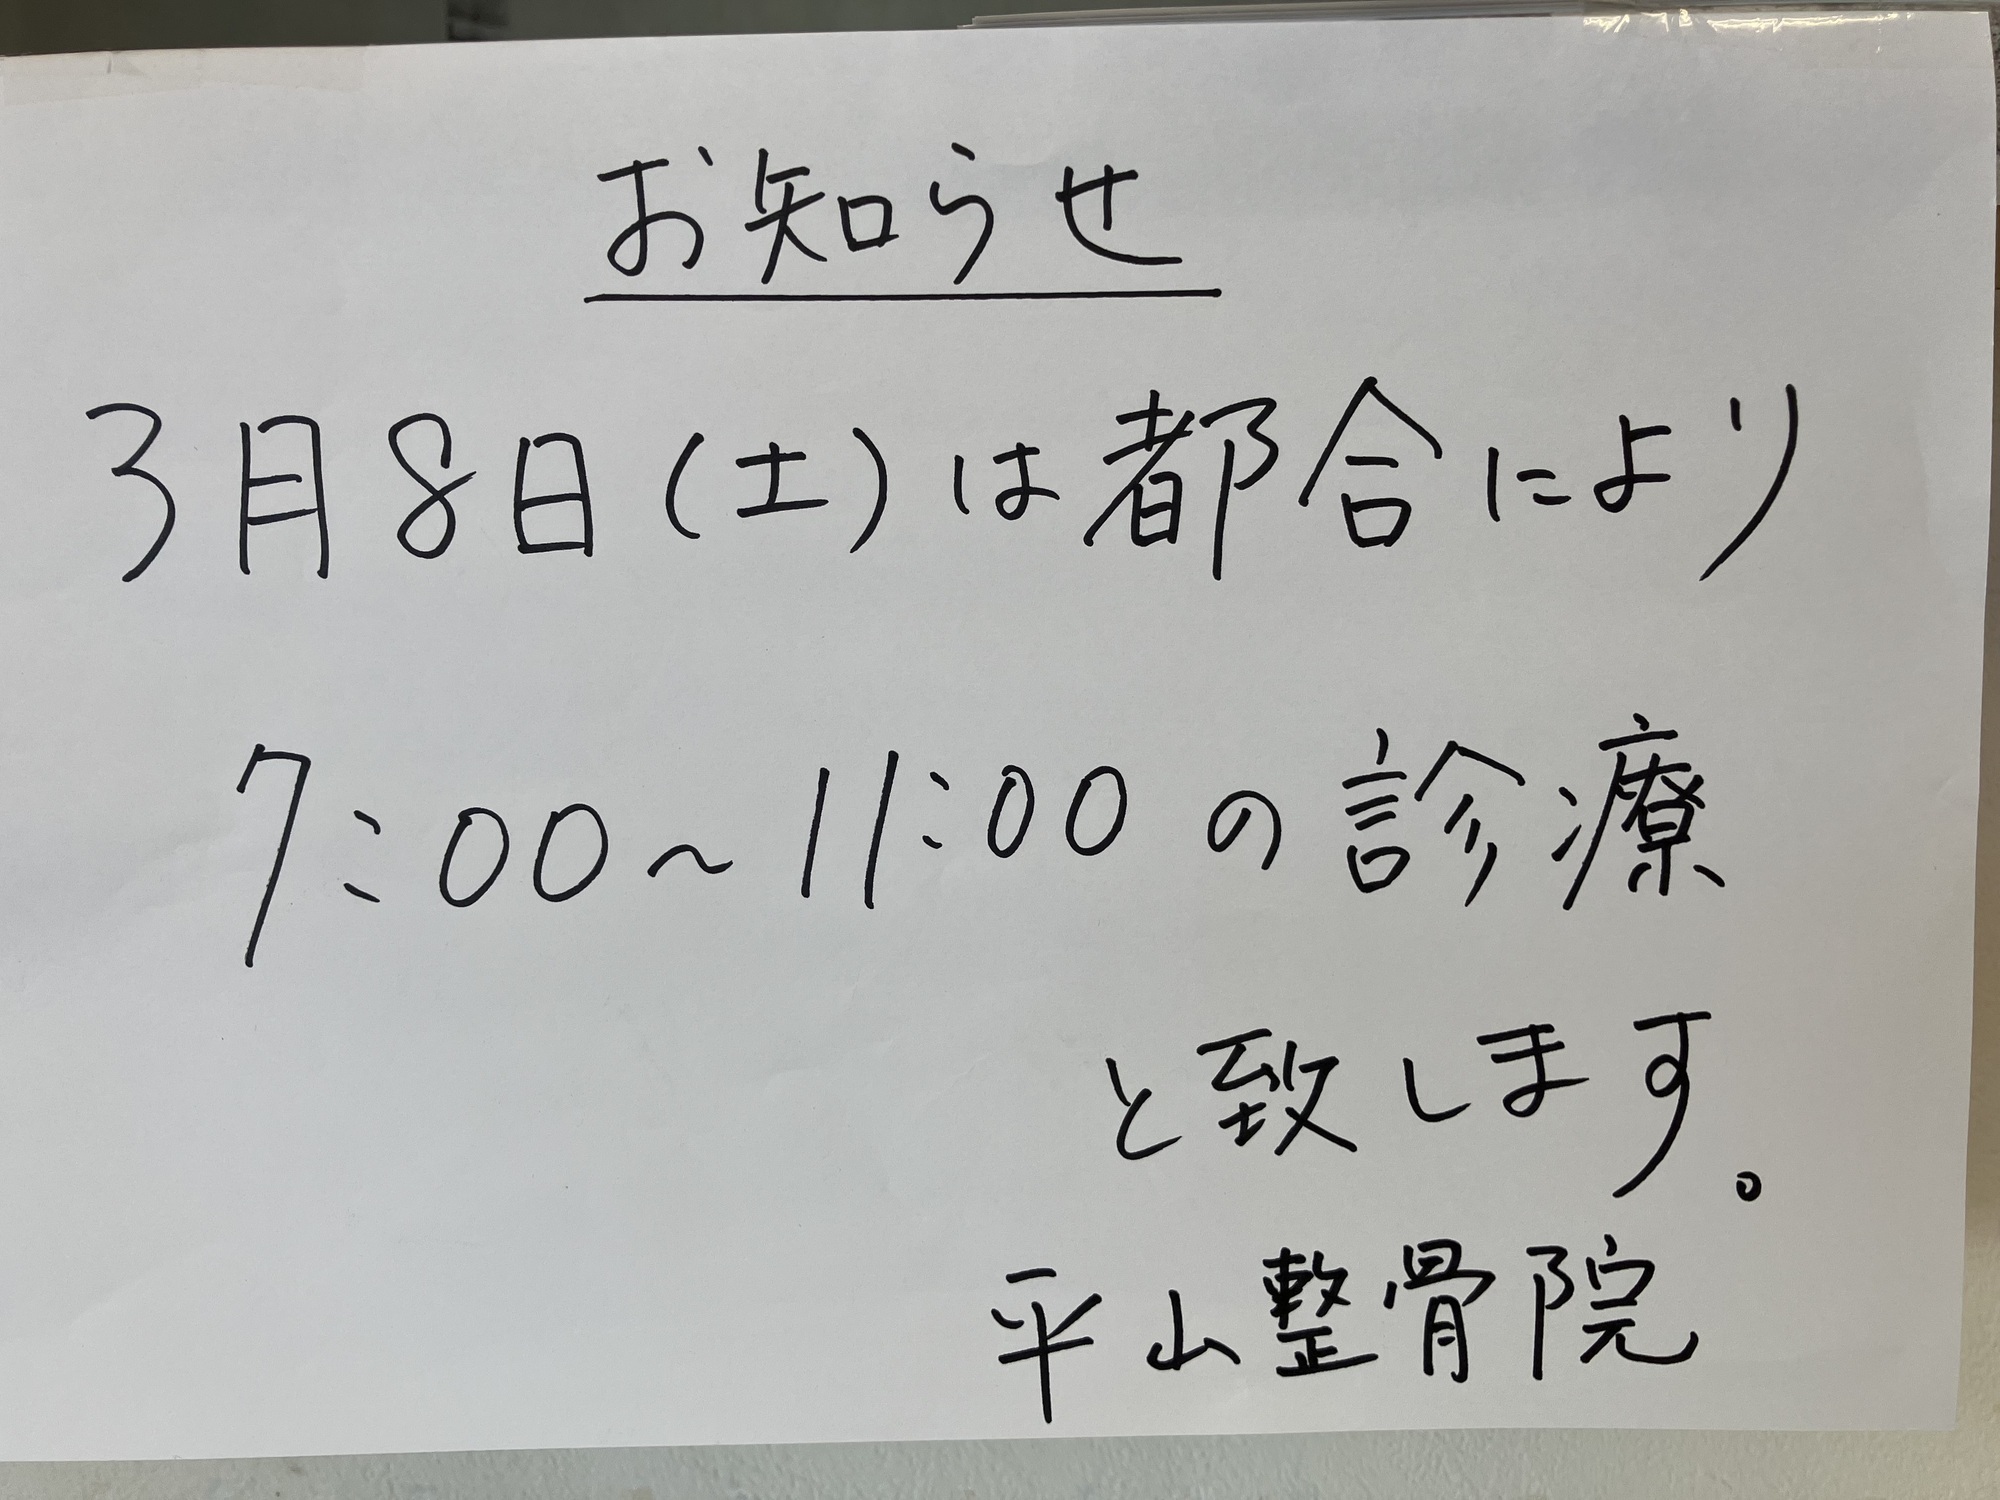 お知らせ
3月8日(土)は都合により
7:00~11:00の診療
と致します。
平山整骨院